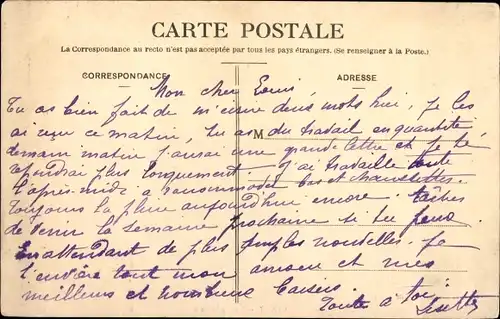 CARTE POSTALE
La Correspondance au recto n'est pas acceptée par tous les pays étrangers. (Se renseigner à la Poste.)
CORRESPONDANCE
ADRESSE
M
Mon cher Louis
Tu as bien fait de m'ecrire deux mots hier, je les
ai reçu ce matin, tu as du travail en quantité
demain matin j'aurai une grande lettre et je te
repondrai plus longuement. J'ai travaillé toute
l'après-midi a raccommoder bas et chaussettes.
Toujours la pluie aujourd'hui encore, tâches
de venir la semaine prochaine si tu peux.
En attendant de plus amples nouvelles. Je
t'envoie tout mon amour et mes
meilleurs et nombreux baisers.
Toute a toi
Lisette